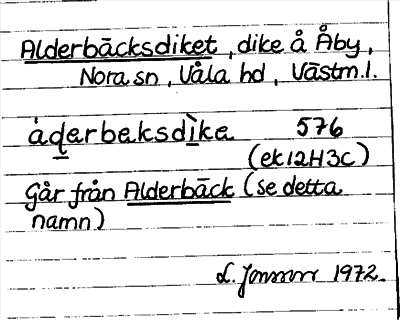 Alderbäcksdiket, dike å Åby,
Nora sn, Våla hd, Västm.l.
àḍarbeksdìka 576
(ek12H3c)
Går från Alderbäck (se detta
namn)
L. Jonsson 1972.